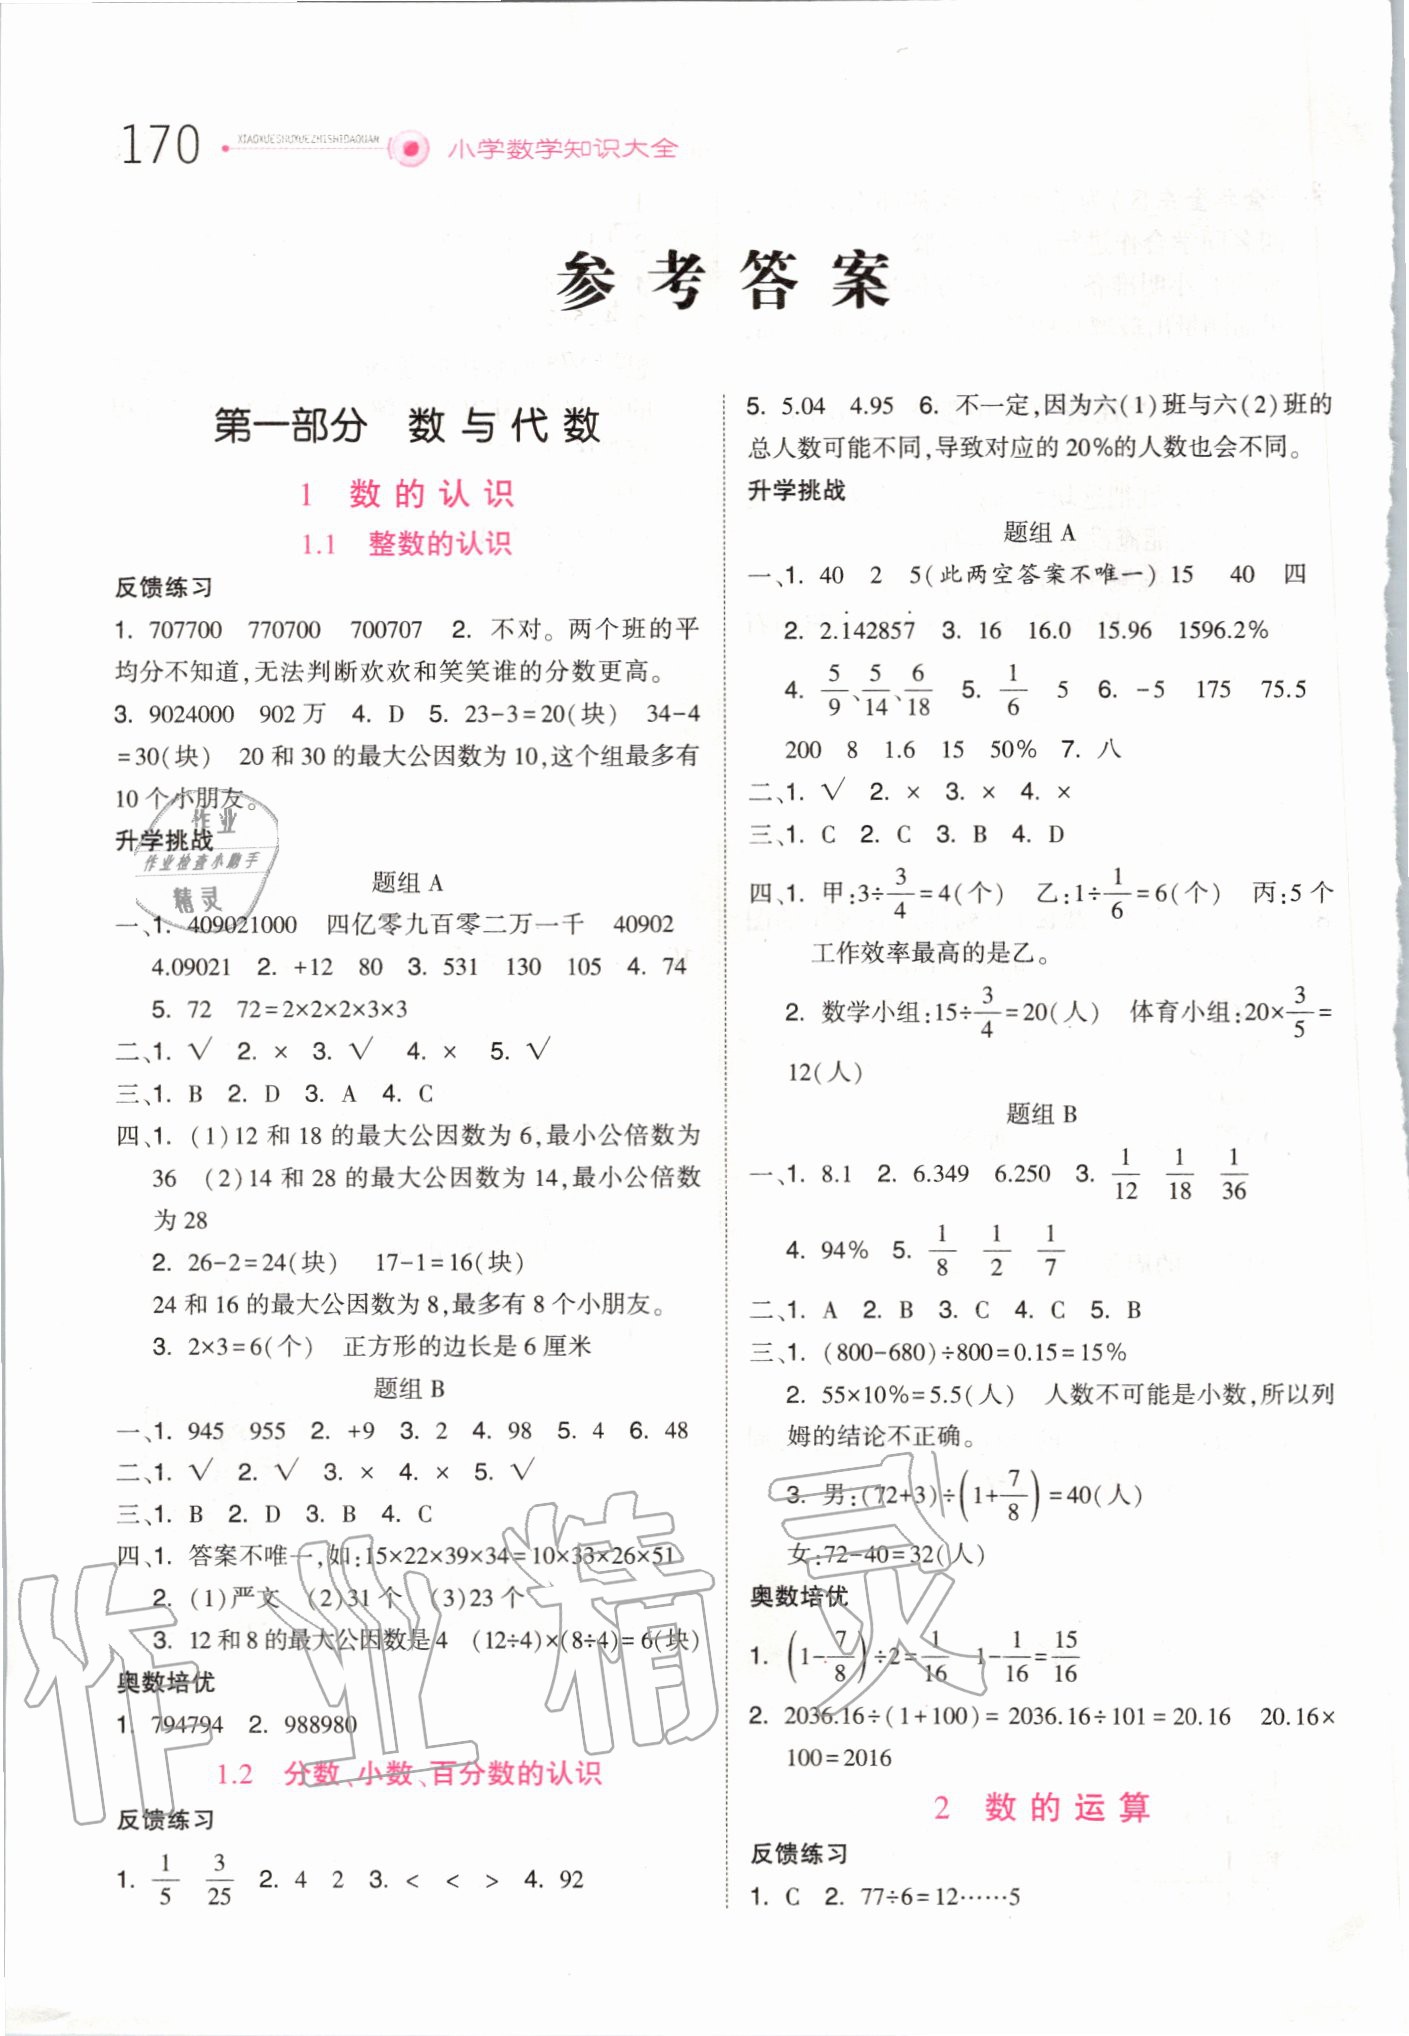 170 XIAOXUESHUXUEZHISHIDAQUAN 小学数学知识大全
参考答案
第一部分 数与代数
1 数的认识
1.1 整数的认识
反馈练习
1. 707700 770700 700707 2. 不对。两个班的平
均分不知道,无法判断欢欢和笑笑谁的分数更高。
3. 9024000 902万 4. D 5. 23-3=20(块) 34-4
=30(块) 20和30的最大公因数为10,这个组最多有
10个小朋友。
升学挑战
题组A
一、1. 409021000 四亿零九百零二万一千 40902
4.09021 2. +12 80 3. 531 130 105 4. 74
5. 72 72=2×2×2×3×3
二、1. √ 2. × 3. √ 4. × 5. √
三、1. B 2. D 3. A 4. C
四、1. (1)12和18的最大公因数为6,最小公倍数为
36 (2)14和28的最大公因数为14,最小公倍数
为28
2. 26-2=24(块) 17-1=16(块)
24和16的最大公因数为8,最多有8个小朋友。
3. 2×3=6(个) 正方形的边长是6厘米
题组B
一、1. 945 955 2. +9 3. 2 4. 98 5. 4 6. 48
二、1. √ 2. √ 3. × 4. × 5. √
三、1. B 2. D 3. B 4. C
四、1. 答案不唯一,如:15×22×39×34=10×33×26×51
2. (1)严文 (2)31个 (3)23个
3. 12和8的最大公因数是4 (12÷4)×(8÷4)=6(块)
奥数培优
1. 794794 2. 988980
1.2 分数、小数、百分数的认识
反馈练习
1. 1/5 3/25 2. 4 2 3. < < > 4. 92
5. 5.04 4.95 6. 不一定,因为六(1)班与六(2)班的
总人数可能不同,导致对应的20%的人数也会不同。
升学挑战
题组A
一、1. 40 2 5(此两空答案不唯一) 15 40 四
2. 2.1̇42857̇ 3. 16 16.0 15.96 1596.2%
4. 5/9、5/14、6/18 5. 1/6 5 6. -5 175 75.5
200 8 1.6 15 50% 7. 八
二、1. √ 2. × 3. × 4. ×
三、1. C 2. C 3. B 4. D
四、1. 甲:3÷3/4=4(个) 乙:1÷1/6=6(个) 丙:5个
工作效率最高的是乙。
2. 数学小组:15÷3/4=20(人) 体育小组:20×3/5=
12(人)
题组B
一、1. 8.1 2. 6.349 6.250 3. 1/12 1/18 1/36
4. 94% 5. 1/8 1/2 1/7
二、1. A 2. B 3. C 4. C 5. B
三、1. (800-680)÷800=0.15=15%
2. 55×10%=5.5(人) 人数不可能是小数,所以列
姆的结论不正确。
3. 男:(72+3)÷(1+7/8)=40(人)
女:72-40=32(人)
奥数培优
1. (1-7/8)÷2=1/16 1-1/16=15/16
2. 2036.16÷(1+100)=2036.16÷101=20.16 20.16×
100=2016
2 数的运算
反馈练习
1. C 2. 77÷6=12……5
作业
作业检查小助手
精灵
作业精灵